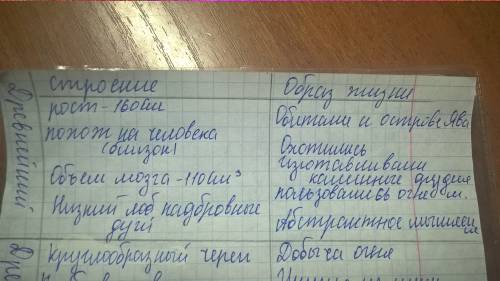 Древнейший
Строение
Образ жизни
рост - 160см
Обитали и острове Ява
похож на человека
(близок)
Охотились
изготавливали
каменные орудия
пользовались огнём.
Объем мозга - 110см³
Низкий лоб надбровные
дуги
Абстрактное мышление
Дре
круглообразный череп
Добыча огня